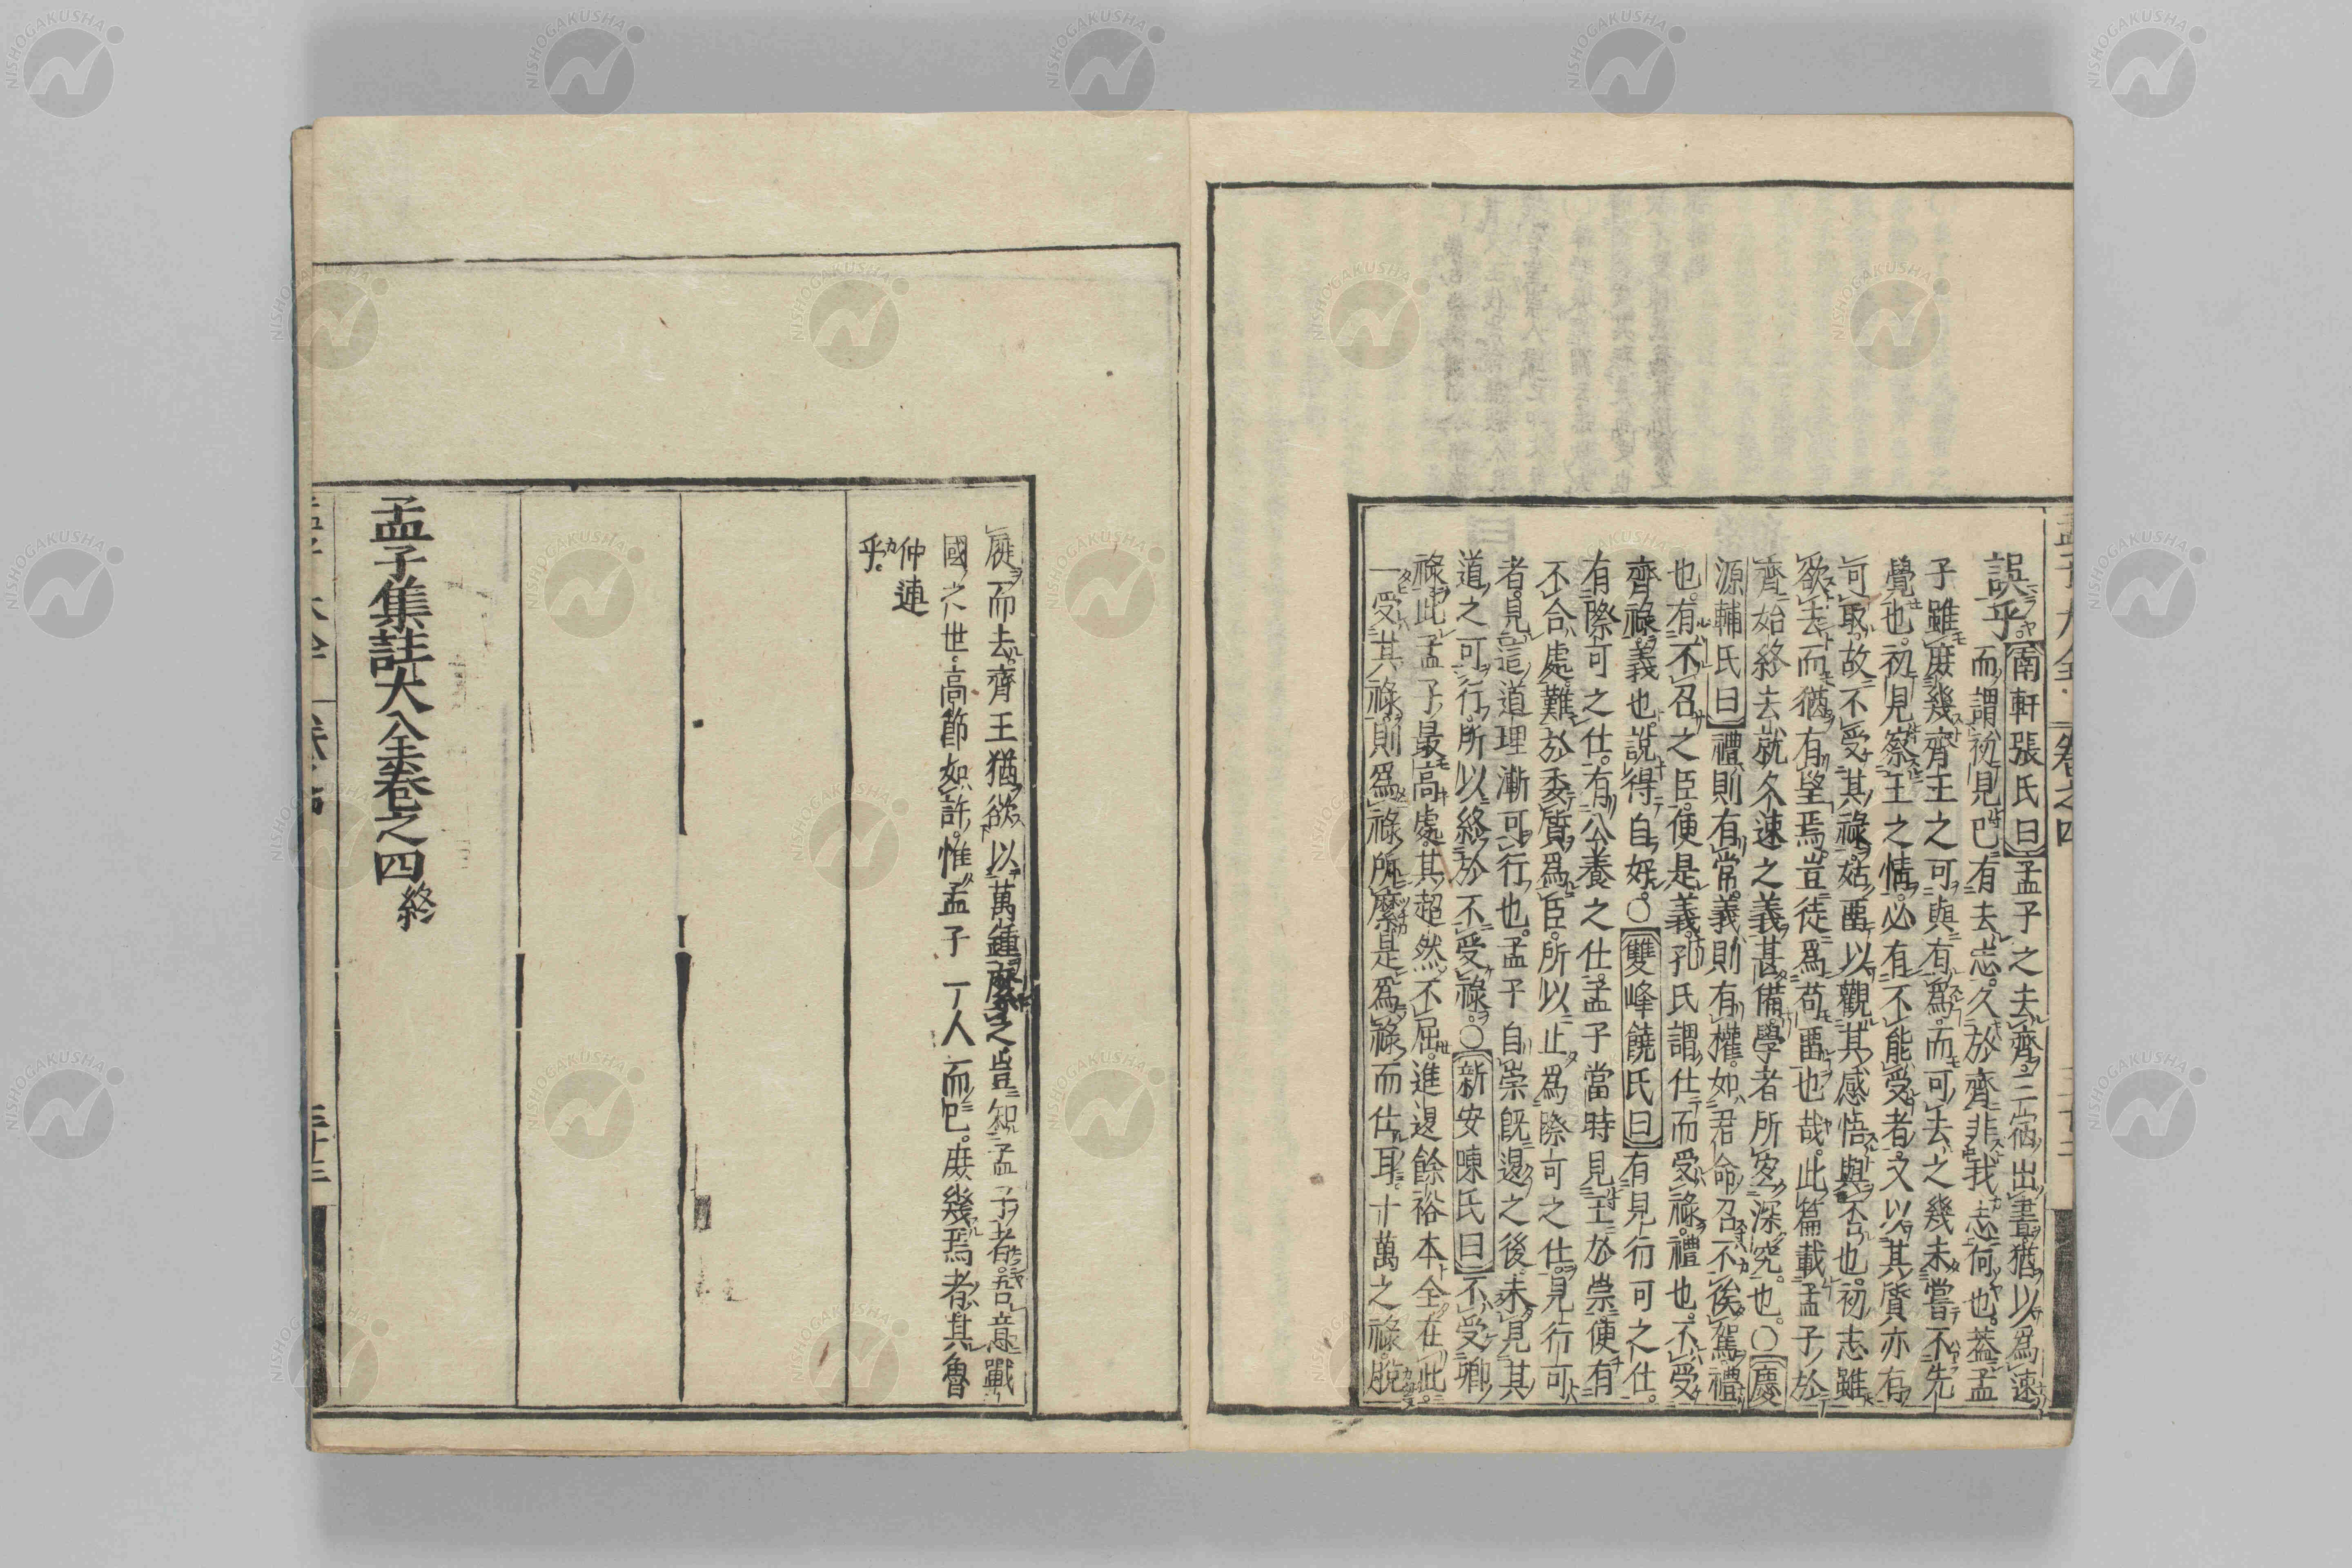 誤乎。南軒張氏曰孟子之去齊。三宿出晝。猶以爲速
而謂初見已有去志。久於齊非我志何也。蓋孟
子雖庶幾齊王之可與有爲。而可去之幾未嘗不先
覺也。初見察王之情。必有不能受者。又以其質亦有
可取。故不受其祿。姑畱以觀其感悟與否也。初志雖
欲去而猶有望焉。豈徒爲苟畱也哉。此篇載孟子於
齊始終去就久速之義甚備。學者所宜深究也。○慶
源輔氏曰禮則有常。義則有權。如君命召不俟駕禮
也。有不召之臣。便是義。孔氏謂仕而受祿。禮也。不受
齊祿。義也。說得自好。○雙峰饒氏曰有見行可之仕。
有際可之仕。有公養之仕。孟子當時見王於崇。便有
不合處。難於委質爲臣。所以止爲際可之仕。見行可
者。見這道理漸可行也。孟子自崇旣退之後未見其
道之可行。所以終於不受祿。○新安陳氏曰不受卿
祿。此孟子最高處。其超然不屈。進退餘裕本全在此。
一受其祿。則爲祿所縻。是爲祿而仕耳。十萬之祿。脫
屣而去。齊王猶欲以萬鍾縻之。豈知孟子者。吾意戰
國之世。高節如許。惟孟子一人而已。庶幾焉者。其魯
仲連
乎。
孟子集註大全卷之四終
孟子大全 卷之四
三十三
NISHOGAKUSHA